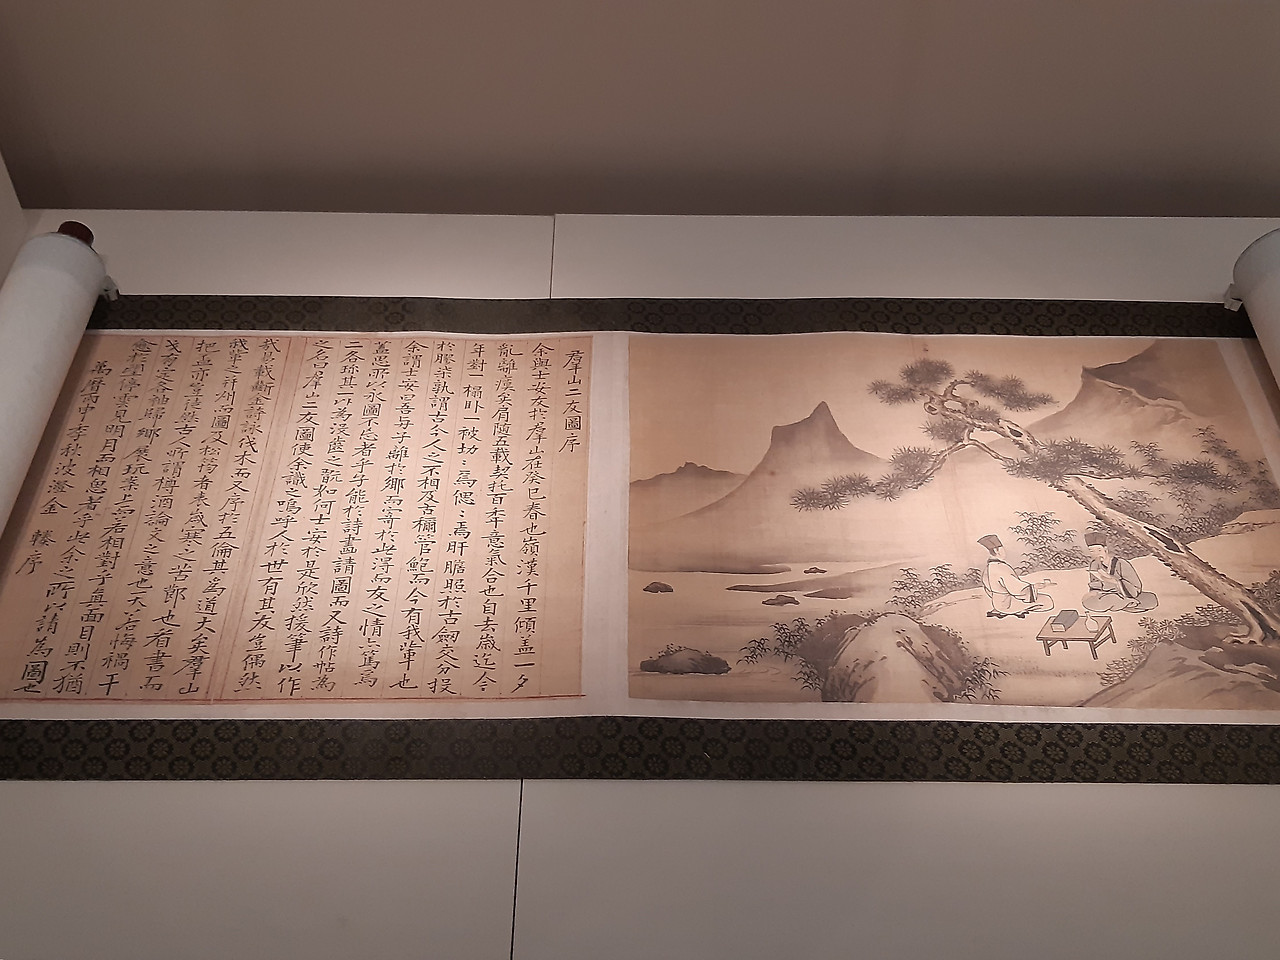 群山二友圖序
余與士安友於群山在癸巳春也嶺漢千里傾蓋一夕
亂離瘼矣肩隨五載契托百年意氣合也自去歲迄今
年對一榻臥一被切〻焉偲〻焉肝膽照於古劒交分投
於膠柒孰謂古今人之不相及古稱管鮑而今有我輩也
余謂士安曰吾與子離於鄉而寄於此得而友之情亦篤焉
盖思所以永圖不忘者乎子能於詩畫請圖而又詩作帖為
二各珎其一以為沒齒之翫如何士安於是欣然援筆以作
之名曰群山二友圖使余識之嗚呼人於世有其友豈偶然
哉易載斷金詩詠伐木而又序於五倫其為道大矣群山
我輩之幷州而圖及松筠者表歲寒之苦節也看書而
把盃亦豈非與古人所謂樽酒論文之意也夫若悔禍干
戈奠定各袖歸鄉展玩案上而若相對子真面目則不猶
愈於望停雲見明月而相思者乎此余之所以請為圖也
萬曆丙申季秋波澄金 序